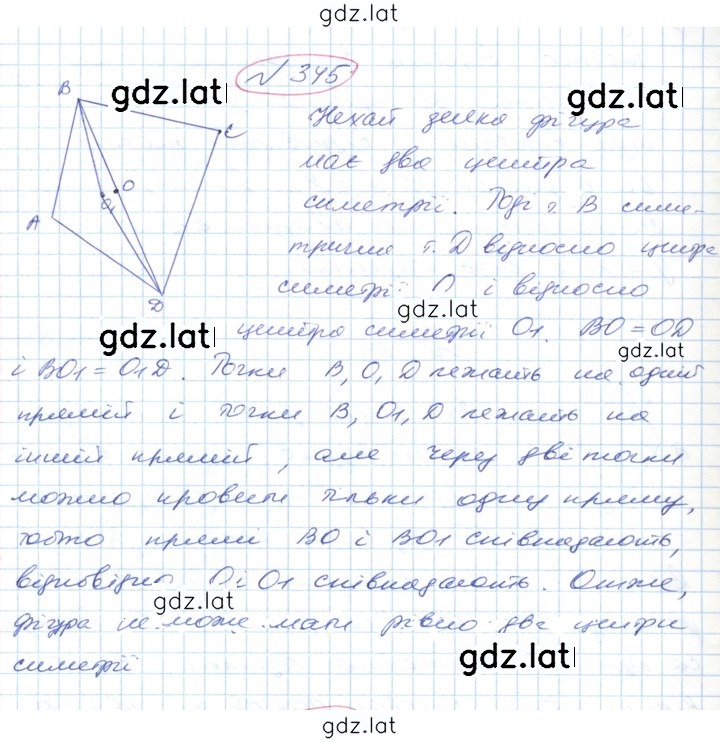 gdz.lat
№ 345
B
gdz.lat
gdz.lat
C
O
O1
A
D
Нехай деяка фігура
має два центра
симетрії. Тоді т. B симе-
трична т. D відносно центра
симетрії O і відносно
gdz.lat
центра симетрії O1. BO = OD
gdz.lat
gdz.lat
і BO1 = O1D. Точки B, O, D лежать на одній
прямій і точки B, O1, D лежать на
іншій прямій, але через дві точки
можно провести тільки одну пряму,
тобто прямі BO і BO1 співпадають,
відповідно O і O1 співпадають. Отже,
gdz.lat
фігура не може мати рівно два центри
симетрії
gdz.lat
gdz.lat